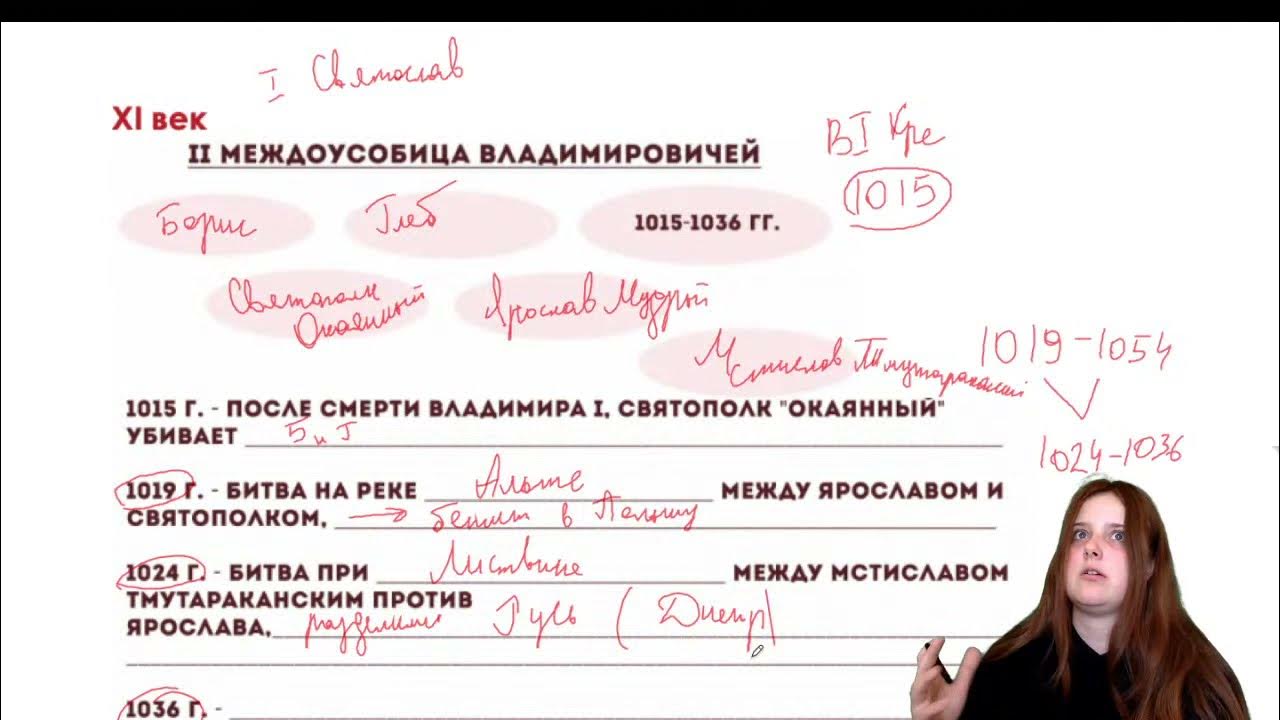 I Святослав
XI век
II МЕЖДОУСОБИЦА ВЛАДИМИРОВИЧЕЙ
ВI Кре
1015
Борис Глеб 1015-1036 ГГ.
Святополк Окаянный Ярослав Мудрый
Мстислав Тмутараканский
1019-1054
1024-1036
1015 Г. - ПОСЛЕ СМЕРТИ ВЛАДИМИРА I, СВЯТОПОЛК "ОКАЯННЫЙ"
УБИВАЕТ Б и Г
1019 Г. - БИТВА НА РЕКЕ Альте МЕЖДУ ЯРОСЛАВОМ И
СВЯТОПОЛКОМ, → бежит в Польшу
1024 Г. - БИТВА ПРИ Листвине МЕЖДУ МСТИСЛАВОМ
ТМУТАРАКАНСКИМ ПРОТИВ
ЯРОСЛАВА, разделили Русь (Днепр)
1036 Г. -